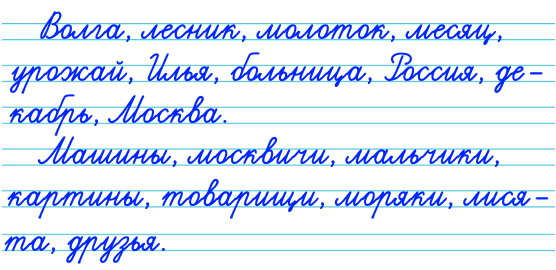 Волга, лесник, молоток, месяц,
урожай, Илья, больница, Россия, де-
кабрь, Москва.
Машины, москвичи, мальчики,
картины, товарищи, моряки, лися-
та, друзья.